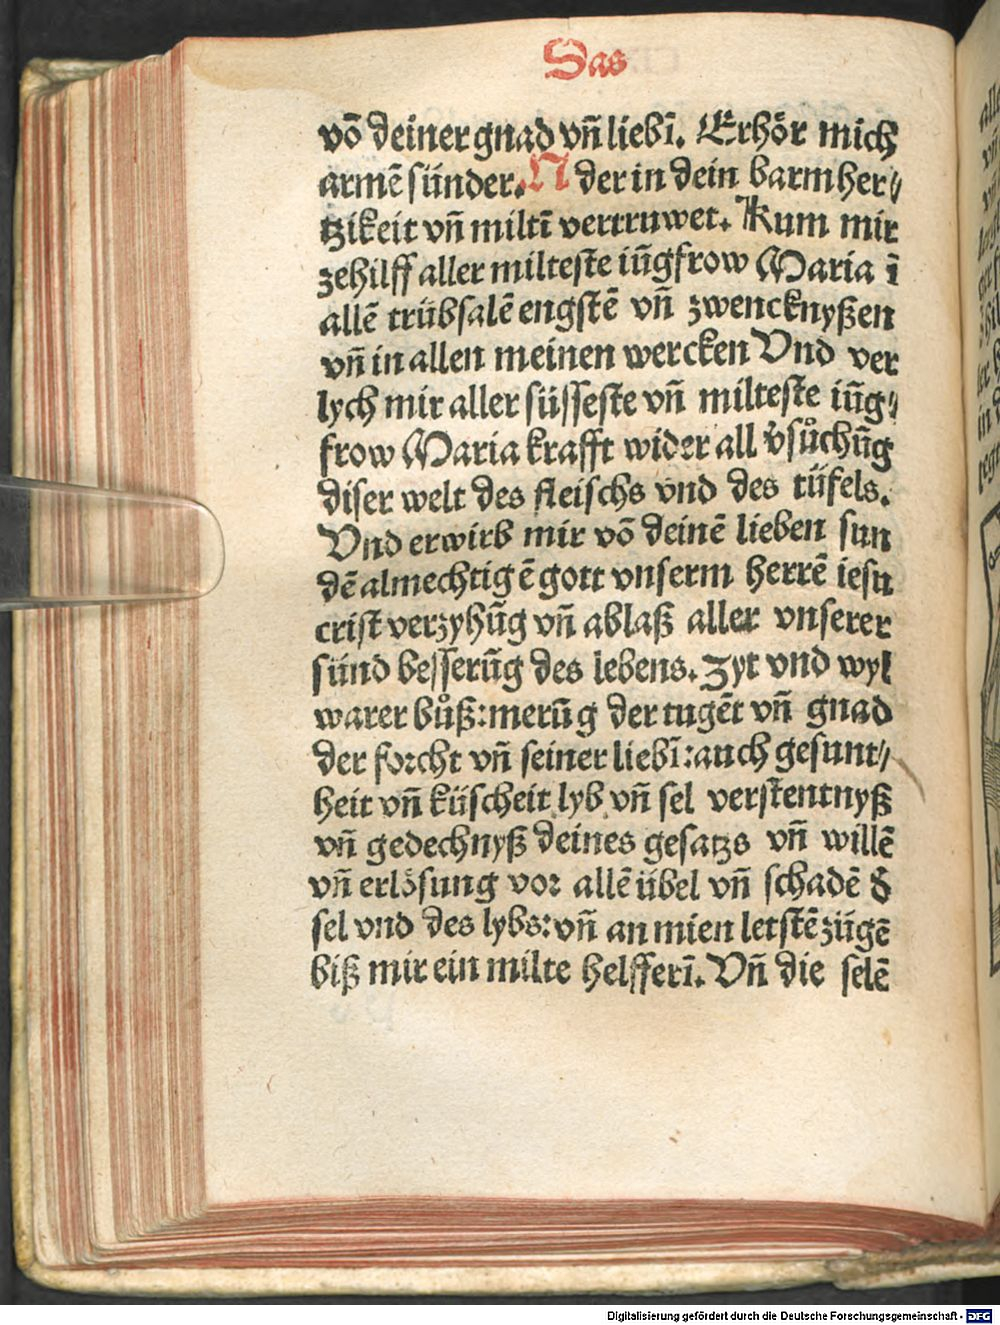 Das
võ deiner gnad vñ liebī. Erhör mich
armē sünder. N der in dein barmher⸗
tzikeit vñ miltī vertruwet. Kum mir
zehilff aller milteste iūgfrow Maria ī
allē trübsalē engstē vñ zwencknyßen
vñ in allen meinen wercken Vnd ver
lych mir aller süsseste vñ milteste iūg⸗
frow Maria krafft wider all v̄sůchūg
diser welt des fleischs vnd des tüfels.
Vnd erwirb mir võ deinē lieben sun
dē almechtigē gott vnserm herrē iesu
crist verzyhūg vñ ablaß aller vnserer
sünd besserūg des lebens. Zyt vnd wyl
warer bůß: merūg der tugēt vñ gnad
der forcht vñ seiner liebī: auch gesunt⸗
heit vñ küscheit lyb vñ sel verstentnyß
vñ gedechnyß deines gesatzs vñ willē
vñ erlösung vor allē übel vñ schadē d̄
sel vnd des lybs: vñ an mien letstē zügē
biß mir ein milte helfferī. Vñ die selē
Digitalisierung gefördert durch die Deutsche Forschungsgemeinschaft - DFG